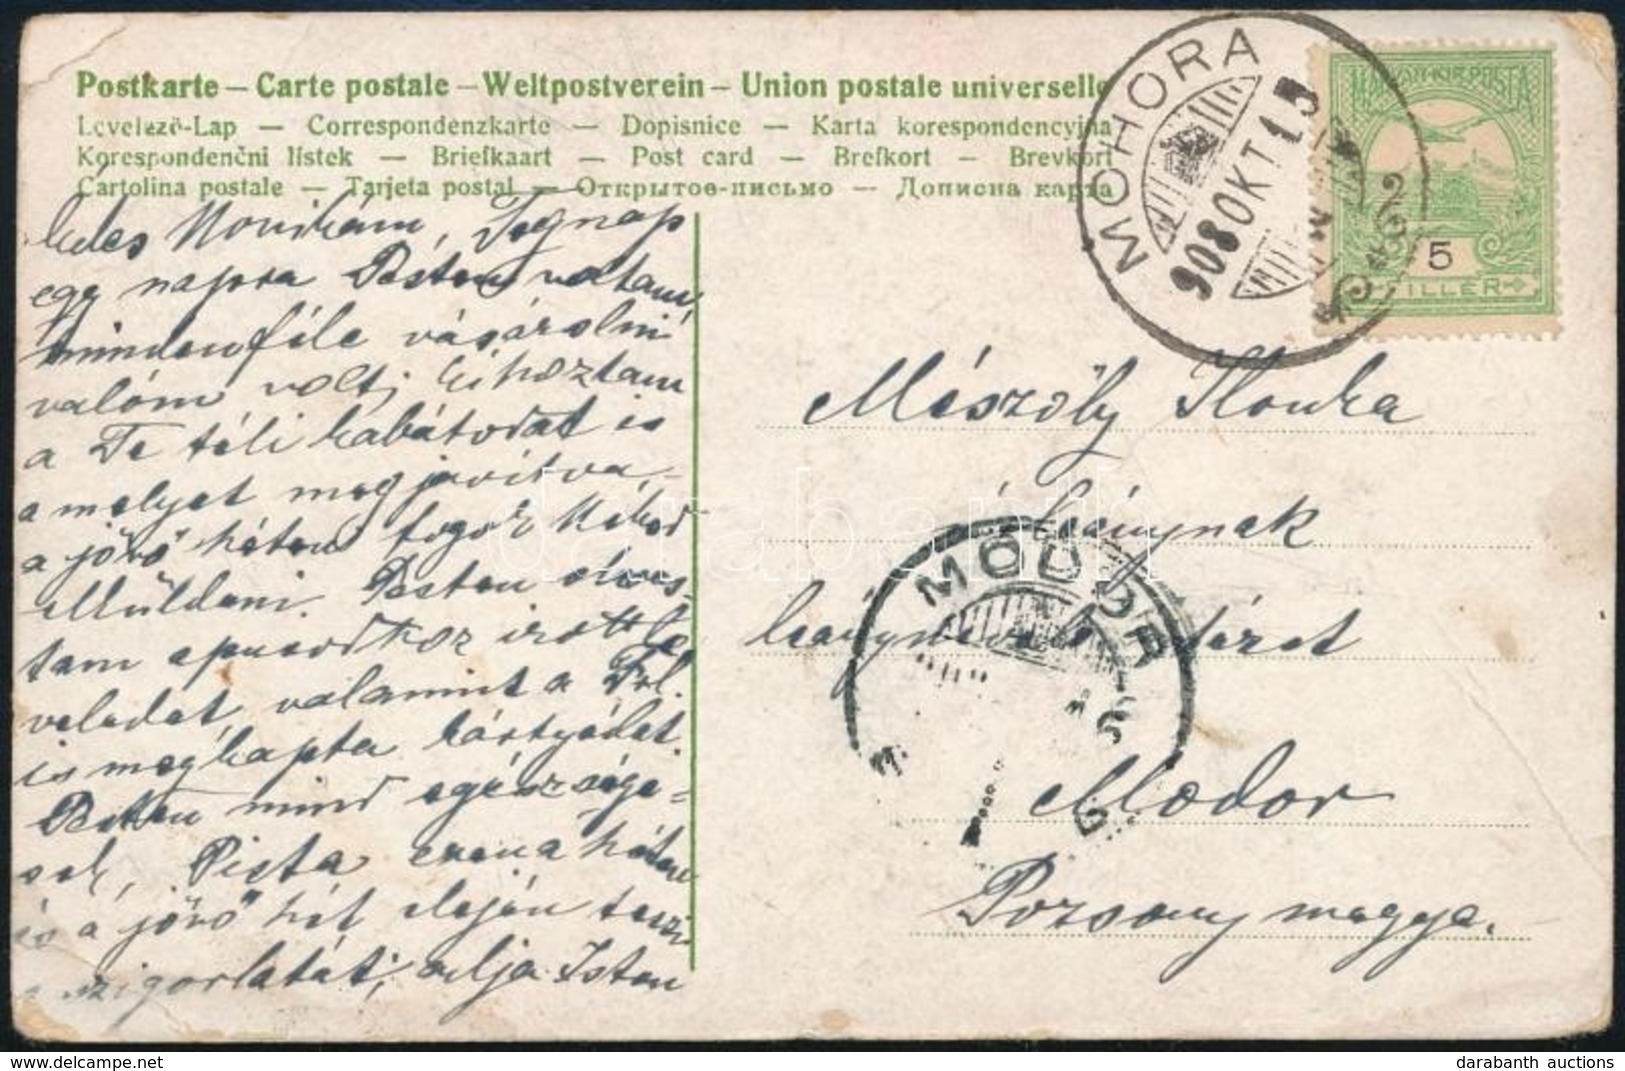 Postkarte – Carte postale – Weltpostverein – Union postale universelle
Levelező-Lap — Correspondenzkarte — Dopisnice — Karta korespondencyjna
Korespondenčni lístek — Briefkaart — Post card — Brefkort — Brevkort
Cartolina postale — Tarjeta postal — Открытое-письмо — Дописна карта
MOHORA
908 OKT 15
MAGYAR KIR. POSTA
5
FILLÉR
Édes Tegnap
egy napra Pesten voltam
mindenféle vásárolni
valóm volt,
a Te téli kabátodat is
amelyet megjavítva
a jövő héten fogok Néked
elküldeni. Pesten olvas-
tam irott
veledet, valamint a
is megkapta kártyádat.
Pesten mind egészsége-
sek, Pista ezen a héten
és a jövő hét elején teszi
szigorlatát, adja Isten
Mészöly Ilonka
leánynak
Modor
Pozsony megye.
MODOR
darabanth
www.delcampe.net
darabanth auctions